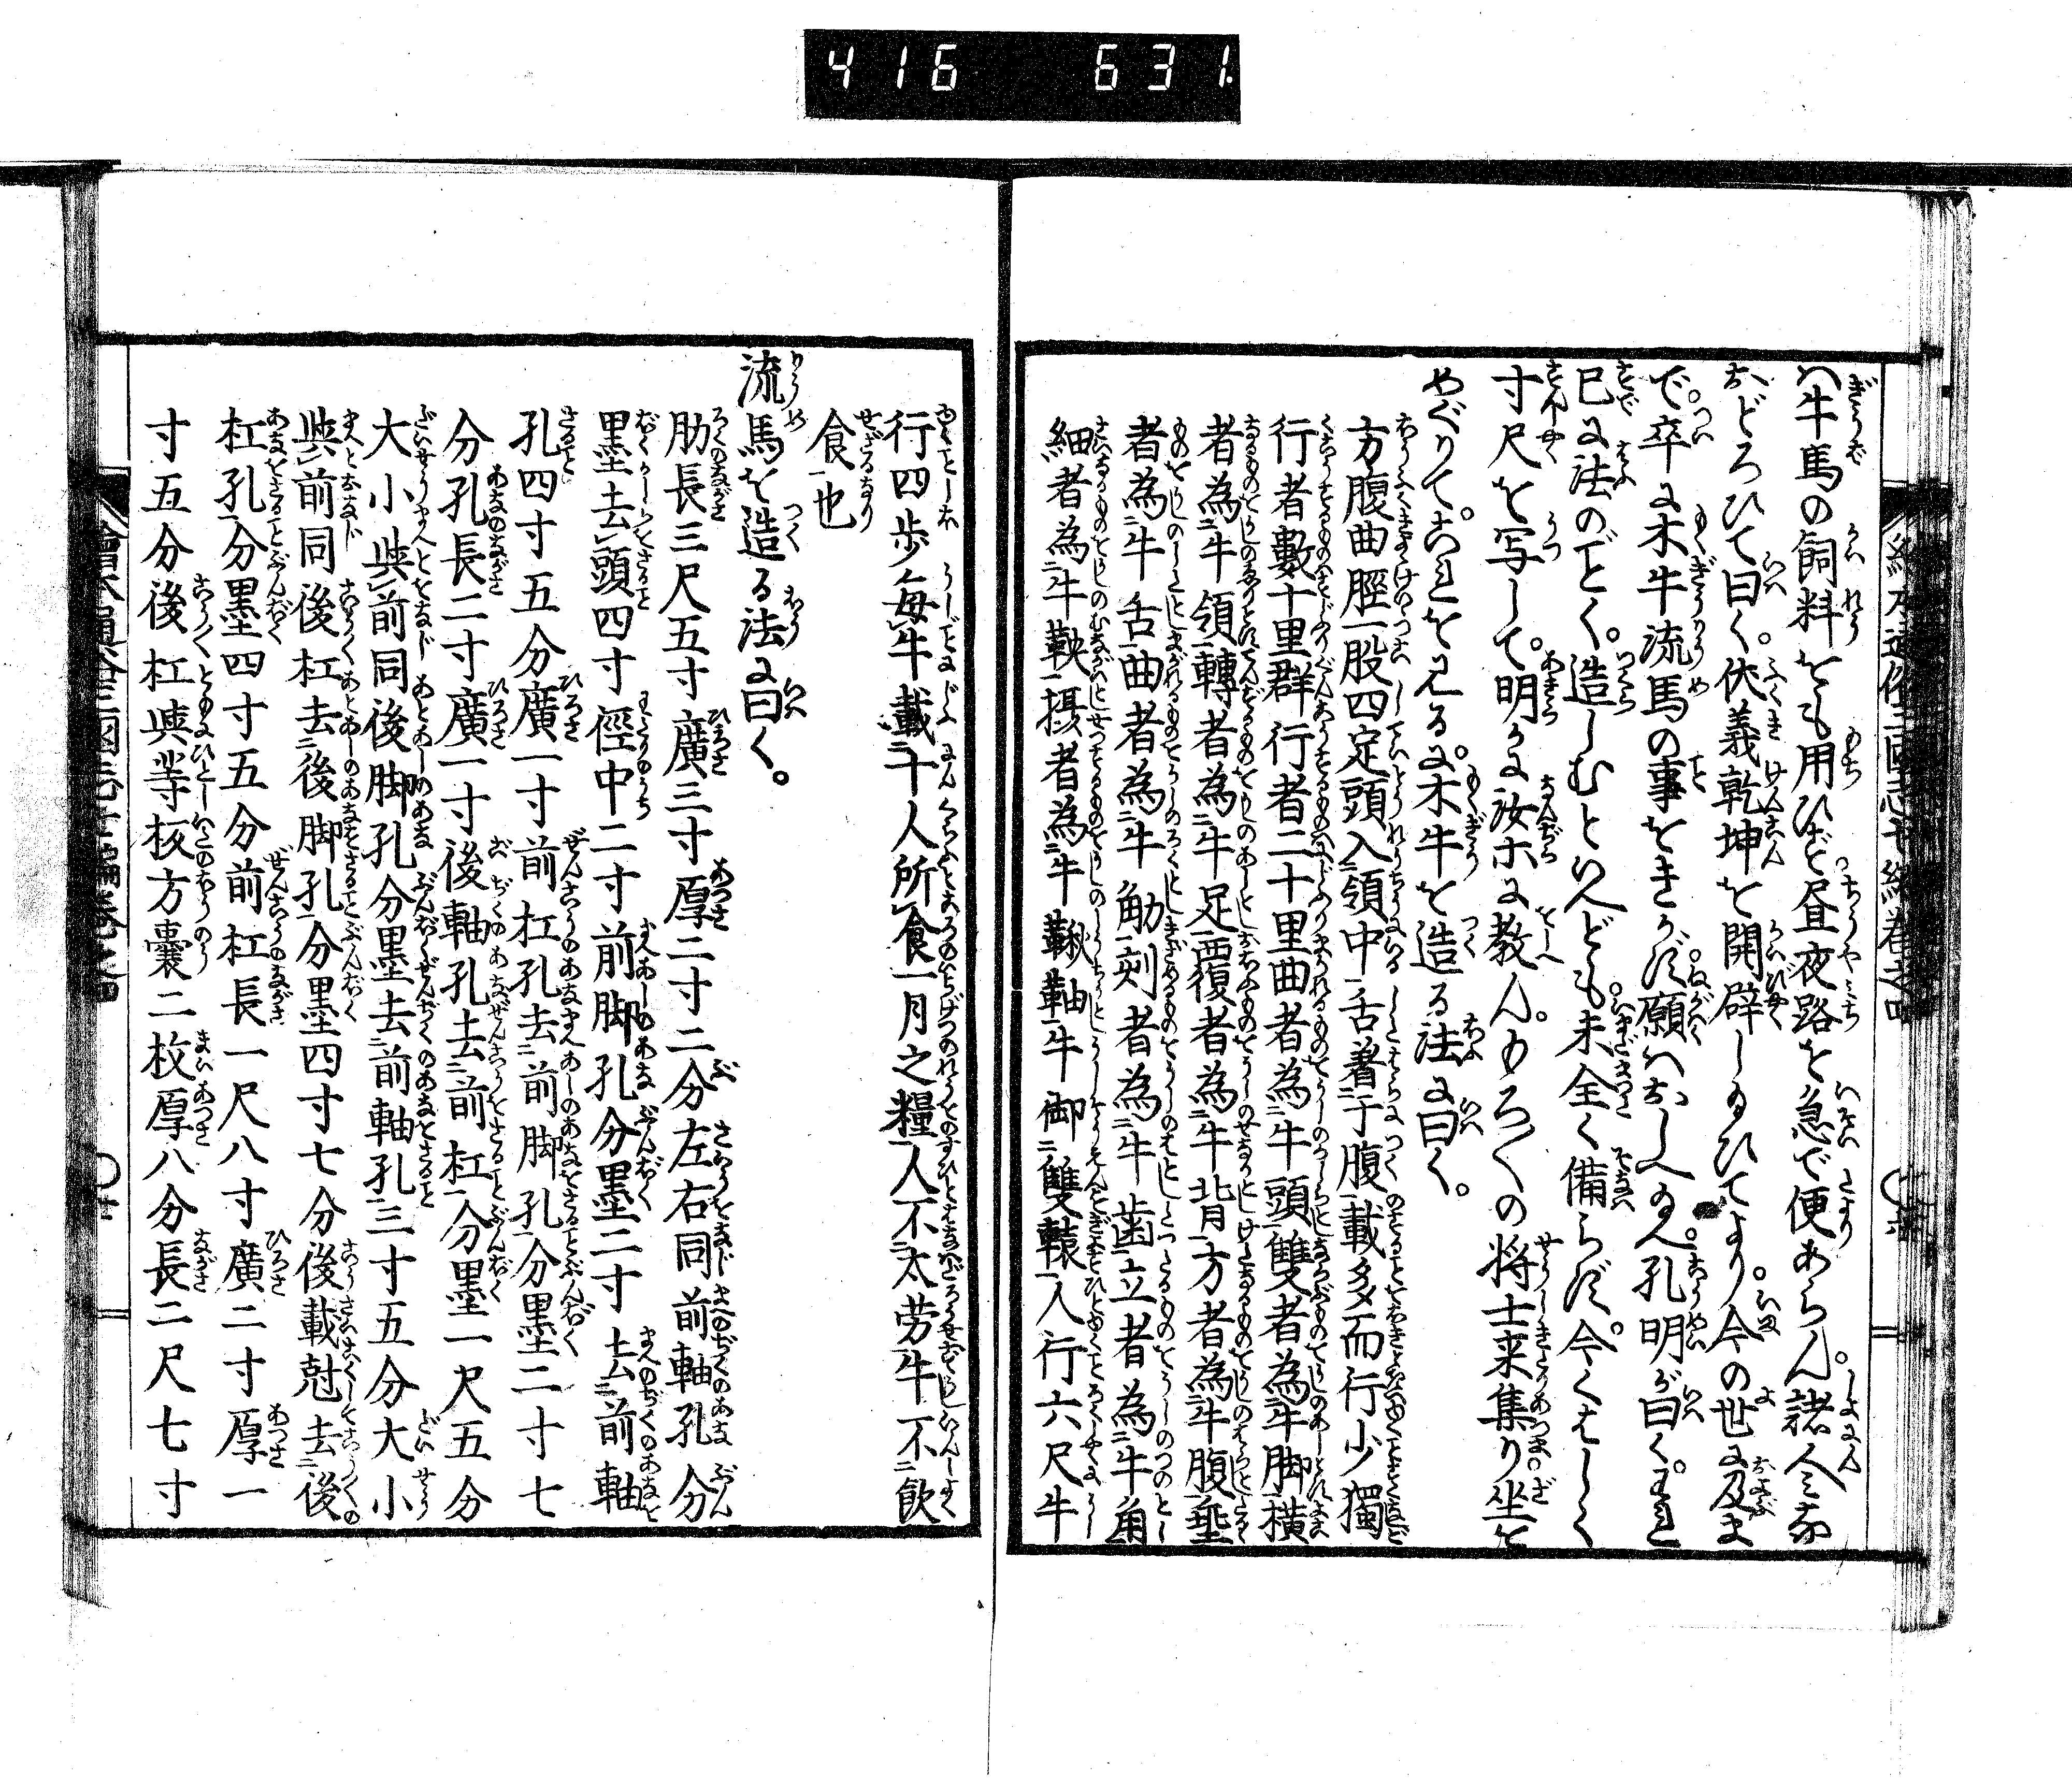 416 631
ハ牛馬の飼料をも用ひず昼夜路を急で便あらん諸人みな
おどろひて曰く。伏義乾坤を開闢しるひてより。今の世に及ま
で。卒に木牛流馬の事をきかず。願ハおしへ為人。孔明が曰く。われ
已に法のごとく。造しむといへども。未全く備らず。今くはしく
寸尺を写して。明かに汝ホに教ん。もろ〱の将士来集り。坐を
めぐりて。これを見るに。木牛を造る法に曰く。
方腹曲脛一股四足頭入領中舌著于腹載多而行少獨
行者數十里群行者二十里曲者為牛頭雙者為牛脚横
者為牛領轉者為牛足覆者為牛背方者為牛腹垂
者為牛舌曲者為牛肋刻者為牛歯立者為牛角
細者為牛鞅摂者為牛鞦軸牛御雙轅人行六尺牛
行四歩毎牛載十人所食一月之糧人不太労牛不飲
食也
流馬を造る法に曰く。
肋長三尺五寸廣三寸厚二寸二分左右同前軸孔分
墨去頭四寸徑中二寸前脚孔分墨二寸去前軸
孔四寸五分廣一寸前杠孔去前脚孔分墨二寸七
分孔長二寸廣一寸後軸孔去前杠分墨一尺五分
大小與前同後脚孔分墨去前軸孔三寸五分大小
與前同後杠去後脚孔分墨四寸七分後載尅去後
杠孔分墨四寸五分前杠長一尺八寸廣二寸厚一
寸五分後杠與等板方嚢二枚厚八分長二尺七寸